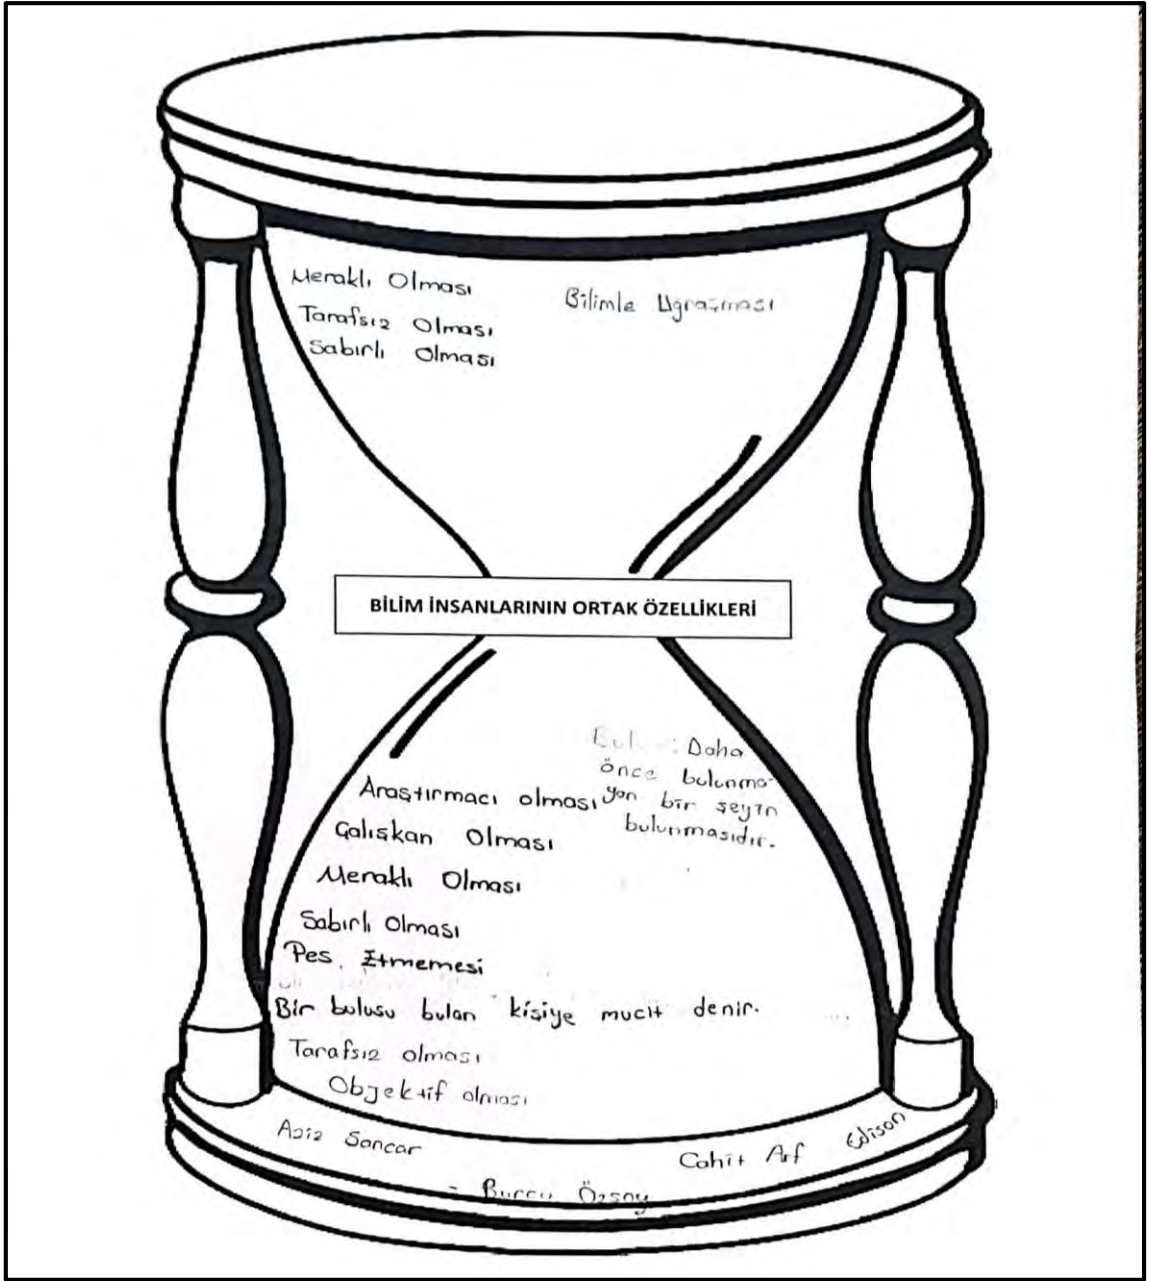 Meraklı Olması
Bilimle Ugraşması
Tarafsız Olması
Sabırlı Olması
BİLİM İNSANLARININ ORTAK ÖZELLİKLERİ
: Daha
önce bulunma-
yan bir şeyin
bulunmasıdır.
Araştırmacı olması
Çalışkan Olması
Meraklı Olması
Sabırlı Olması
Pes Etmemesi
Bir buluşu bulan kişiye mucit denir.
Tarafsız olması
Objektif olması
Aziz Sancar
Cahit Arf
Edison
- Burcu Özsoy